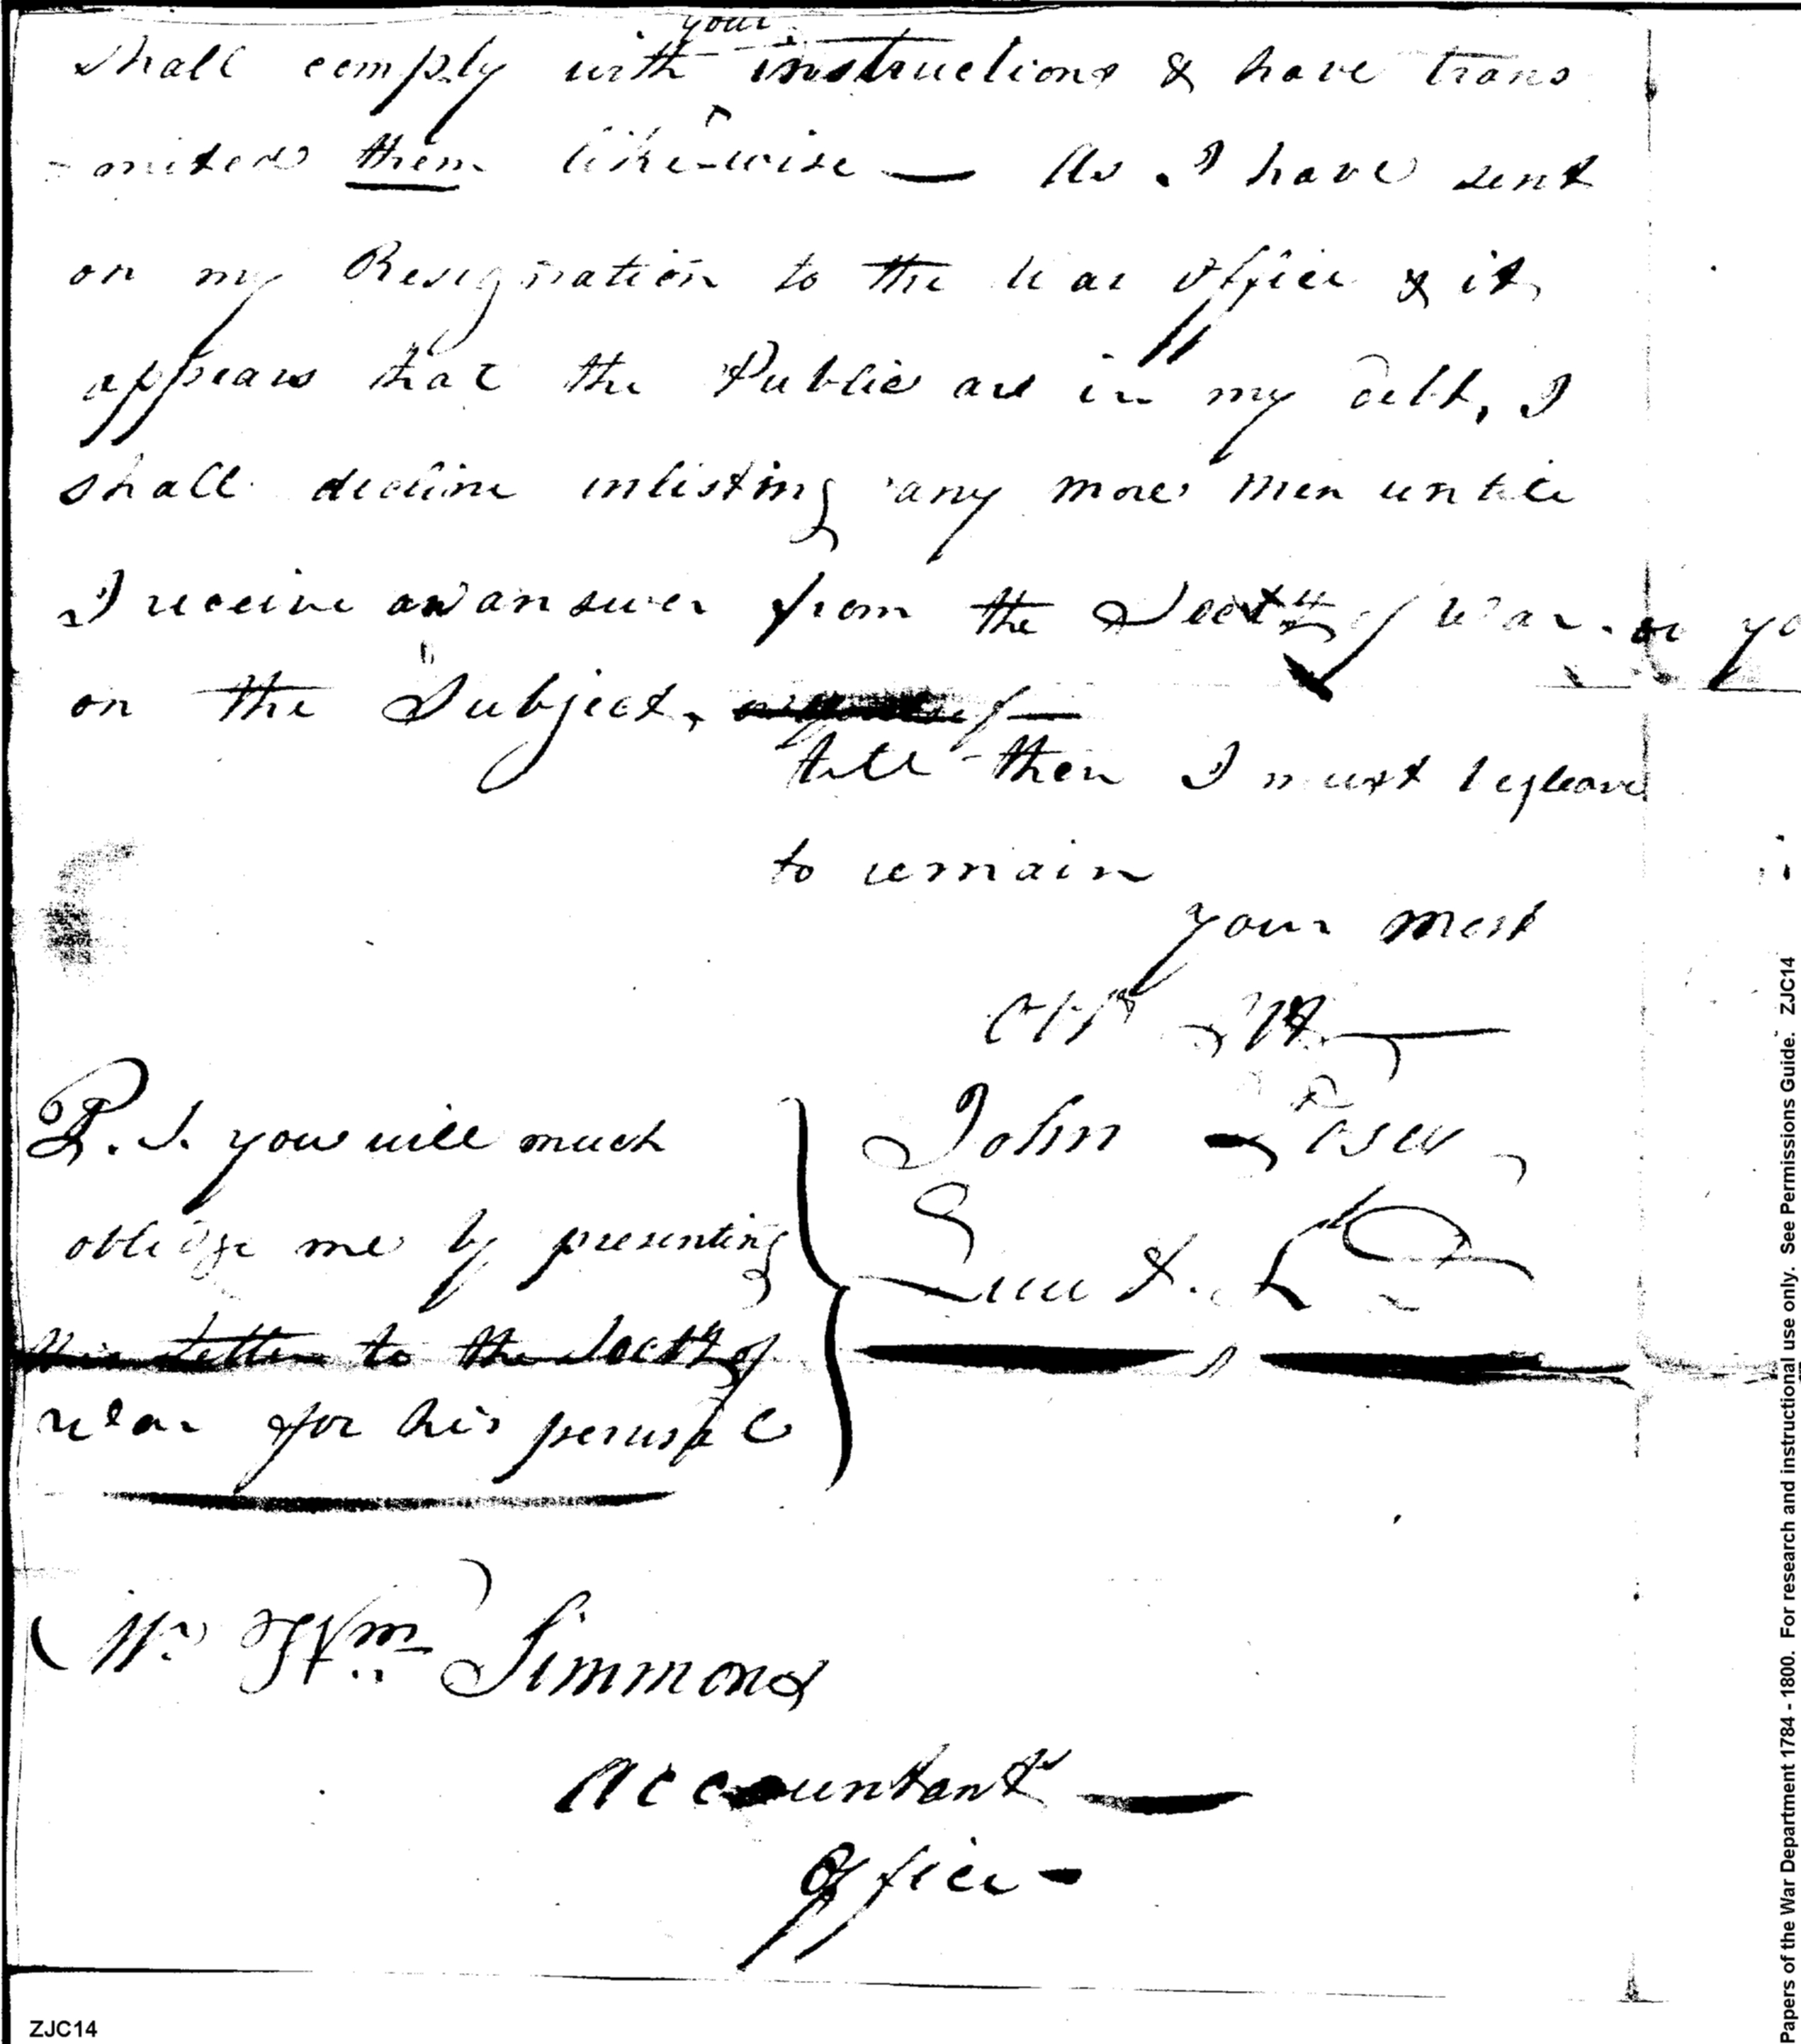 your
shall comply with instructions & have trans
- mited them likewise — As I have sent
on my Resignation to the War Office & it
appears that the Public are in my debt, I
shall decline inlisting any more men untill
I receive an answer from the Sectty of War. or yo
on the Subject,
till then I must beg leave
to remain
your most
Obt
John
Lieut.
P.S. you will much
oblidge me by presenting
this Letter to the Sectty of
War for his perusal
Mr Wm Simmons
Accountant
Office
ZJC14
Papers of the War Department 1784 - 1800. For research and instructional use only. See Permissions Guide. ZJC14